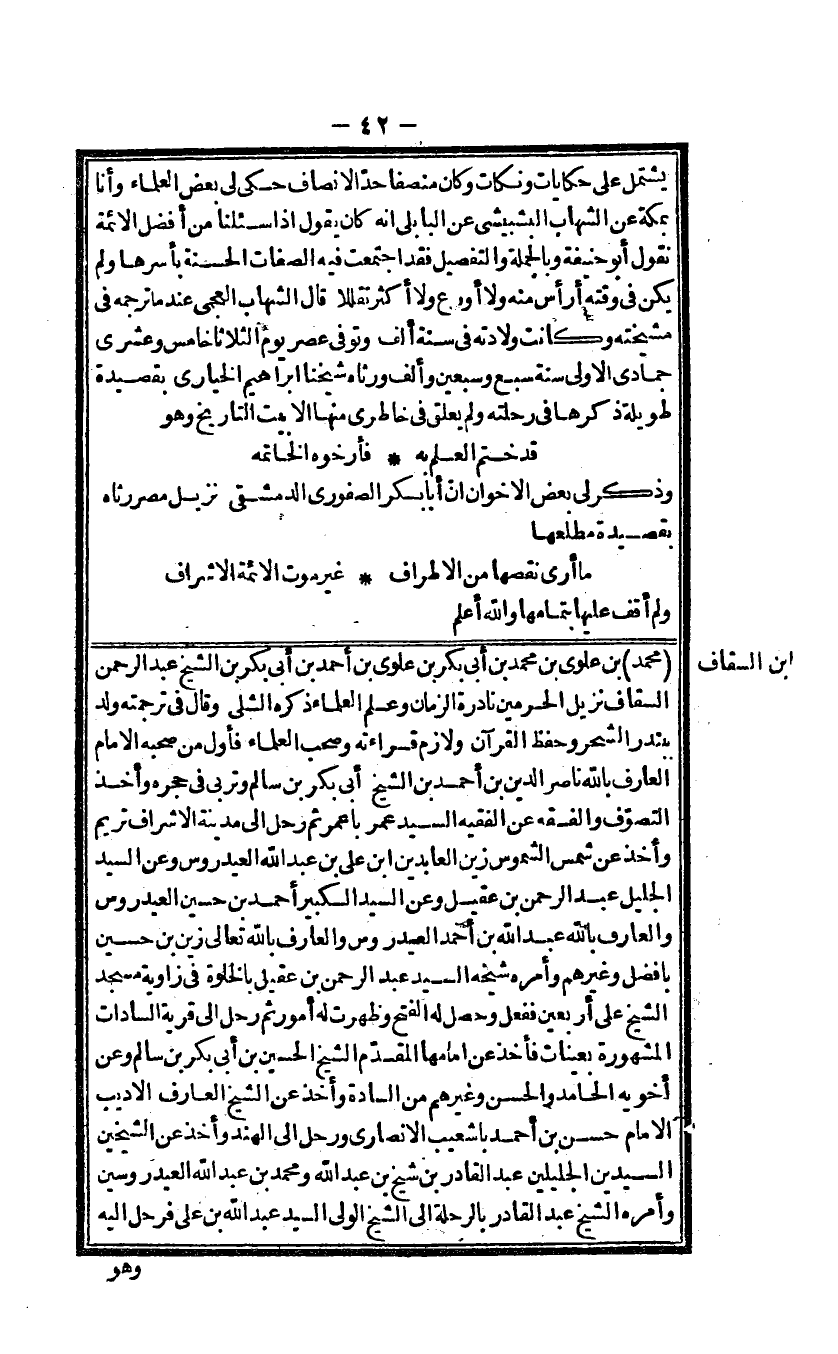 - ٤٢ -
يشتمل على حكايات ونكات وكان منصفا حدّ الانصاف حكى لى بعض العلماء وأنا
بمكة عن الشهاب البشبيشى عن البابلى انه كان يقول اذا سئلنا من أفضل الائمة
نقول أبو حنيفة وبالجملة والتفصيل فقد اجتمعت فيه الصفات الحسنة بأسرها ولم
يكن فى وقته أرأس منه ولا أورع ولا أكثر تقللا قال الشهاب العجمى عند ما ترجمه فى
مشيخته وكانت ولادته فى سنة ألف وتوفى عصر يوم الثلاثا خامس وعشرى
جمادى الاولى سنة سبع وسبعين وألف ورثاه شيخنا ابراهيم الخيارى بقصيدة
طويلة ذكرها فى رحلته ولم يعلق فى خاطرى منها الا بيت التاريخ وهو
قد ختم العلم به * فأرخوه الخاتمه
وذكر لى بعض الاخوان انّ أبا بكر الصفورى الدمشقى نزيل مصر رثاه
بقصيدة مطلعها
ما أرى نقصها من الاطراف * غير موت الائمة الاشراف
ولم أقف عليها بتمامها والله أعلم
ابن السقاف
(محمد) بن علوى بن محمد بن أبى بكر بن علوى بن أحمد بن أبى بكر بن الشيخ عبد الرحمن
السقاف نزيل الحرمين نادرة الزمان وعلم العلماء ذكره الشلى وقال فى ترجمته ولد
ببندر الشحر وحفظ القرآن ولازم قراءته وصحب العلماء فأول من صحبه الامام
العارف بالله ناصر الدين بن أحمد بن الشيخ أبى بكر بن سالم وتربى فى حجره وأخذ
التصوّف والفقه عن الفقيه السيد عمر باعمر ثم رحل الى مدينة الاشراف تريم
وأخذ عن شمس الشموس زين العابدين ابن على بن عبد الله العيدروس وعن السيد
الجليل عبد الرحمن بن عقيل وعن السيد الكبير أحمد بن حسين العيدروس
والعارف بالله عبد الله بن أحمد العيدروس والعارف بالله تعالى زين بن حسين
بافضل وغيرهم وأمره شيخه السيد عبد الرحمن بن عقيل بالخلوة فى زاوية مسجد
الشيخ على أربعين ففعل وحصل له الفتح وظهرت له أمور ثم رحل الى قرية السادات
المشهورة بعينات فأخذ عن امامها المقدّم الشيخ الحسين بن أبى بكر بن سالم وعن
أخويه الحامد والحسن وغيرهم من السادة وأخذ عن الشيخ العارف الاديب
الامام حسن بن أحمد باشعيب الانصارى ورحل الى الهند وأخذ عن الشيخين
السيدين الجليلين عبد القادر بن شيخ بن عبد الله ومحمد بن عبد الله العيدروسين
وأمره الشيخ عبد القادر بالرحلة الى الشيخ الولى السيد عبد الله بن على فرحل اليه
وهو